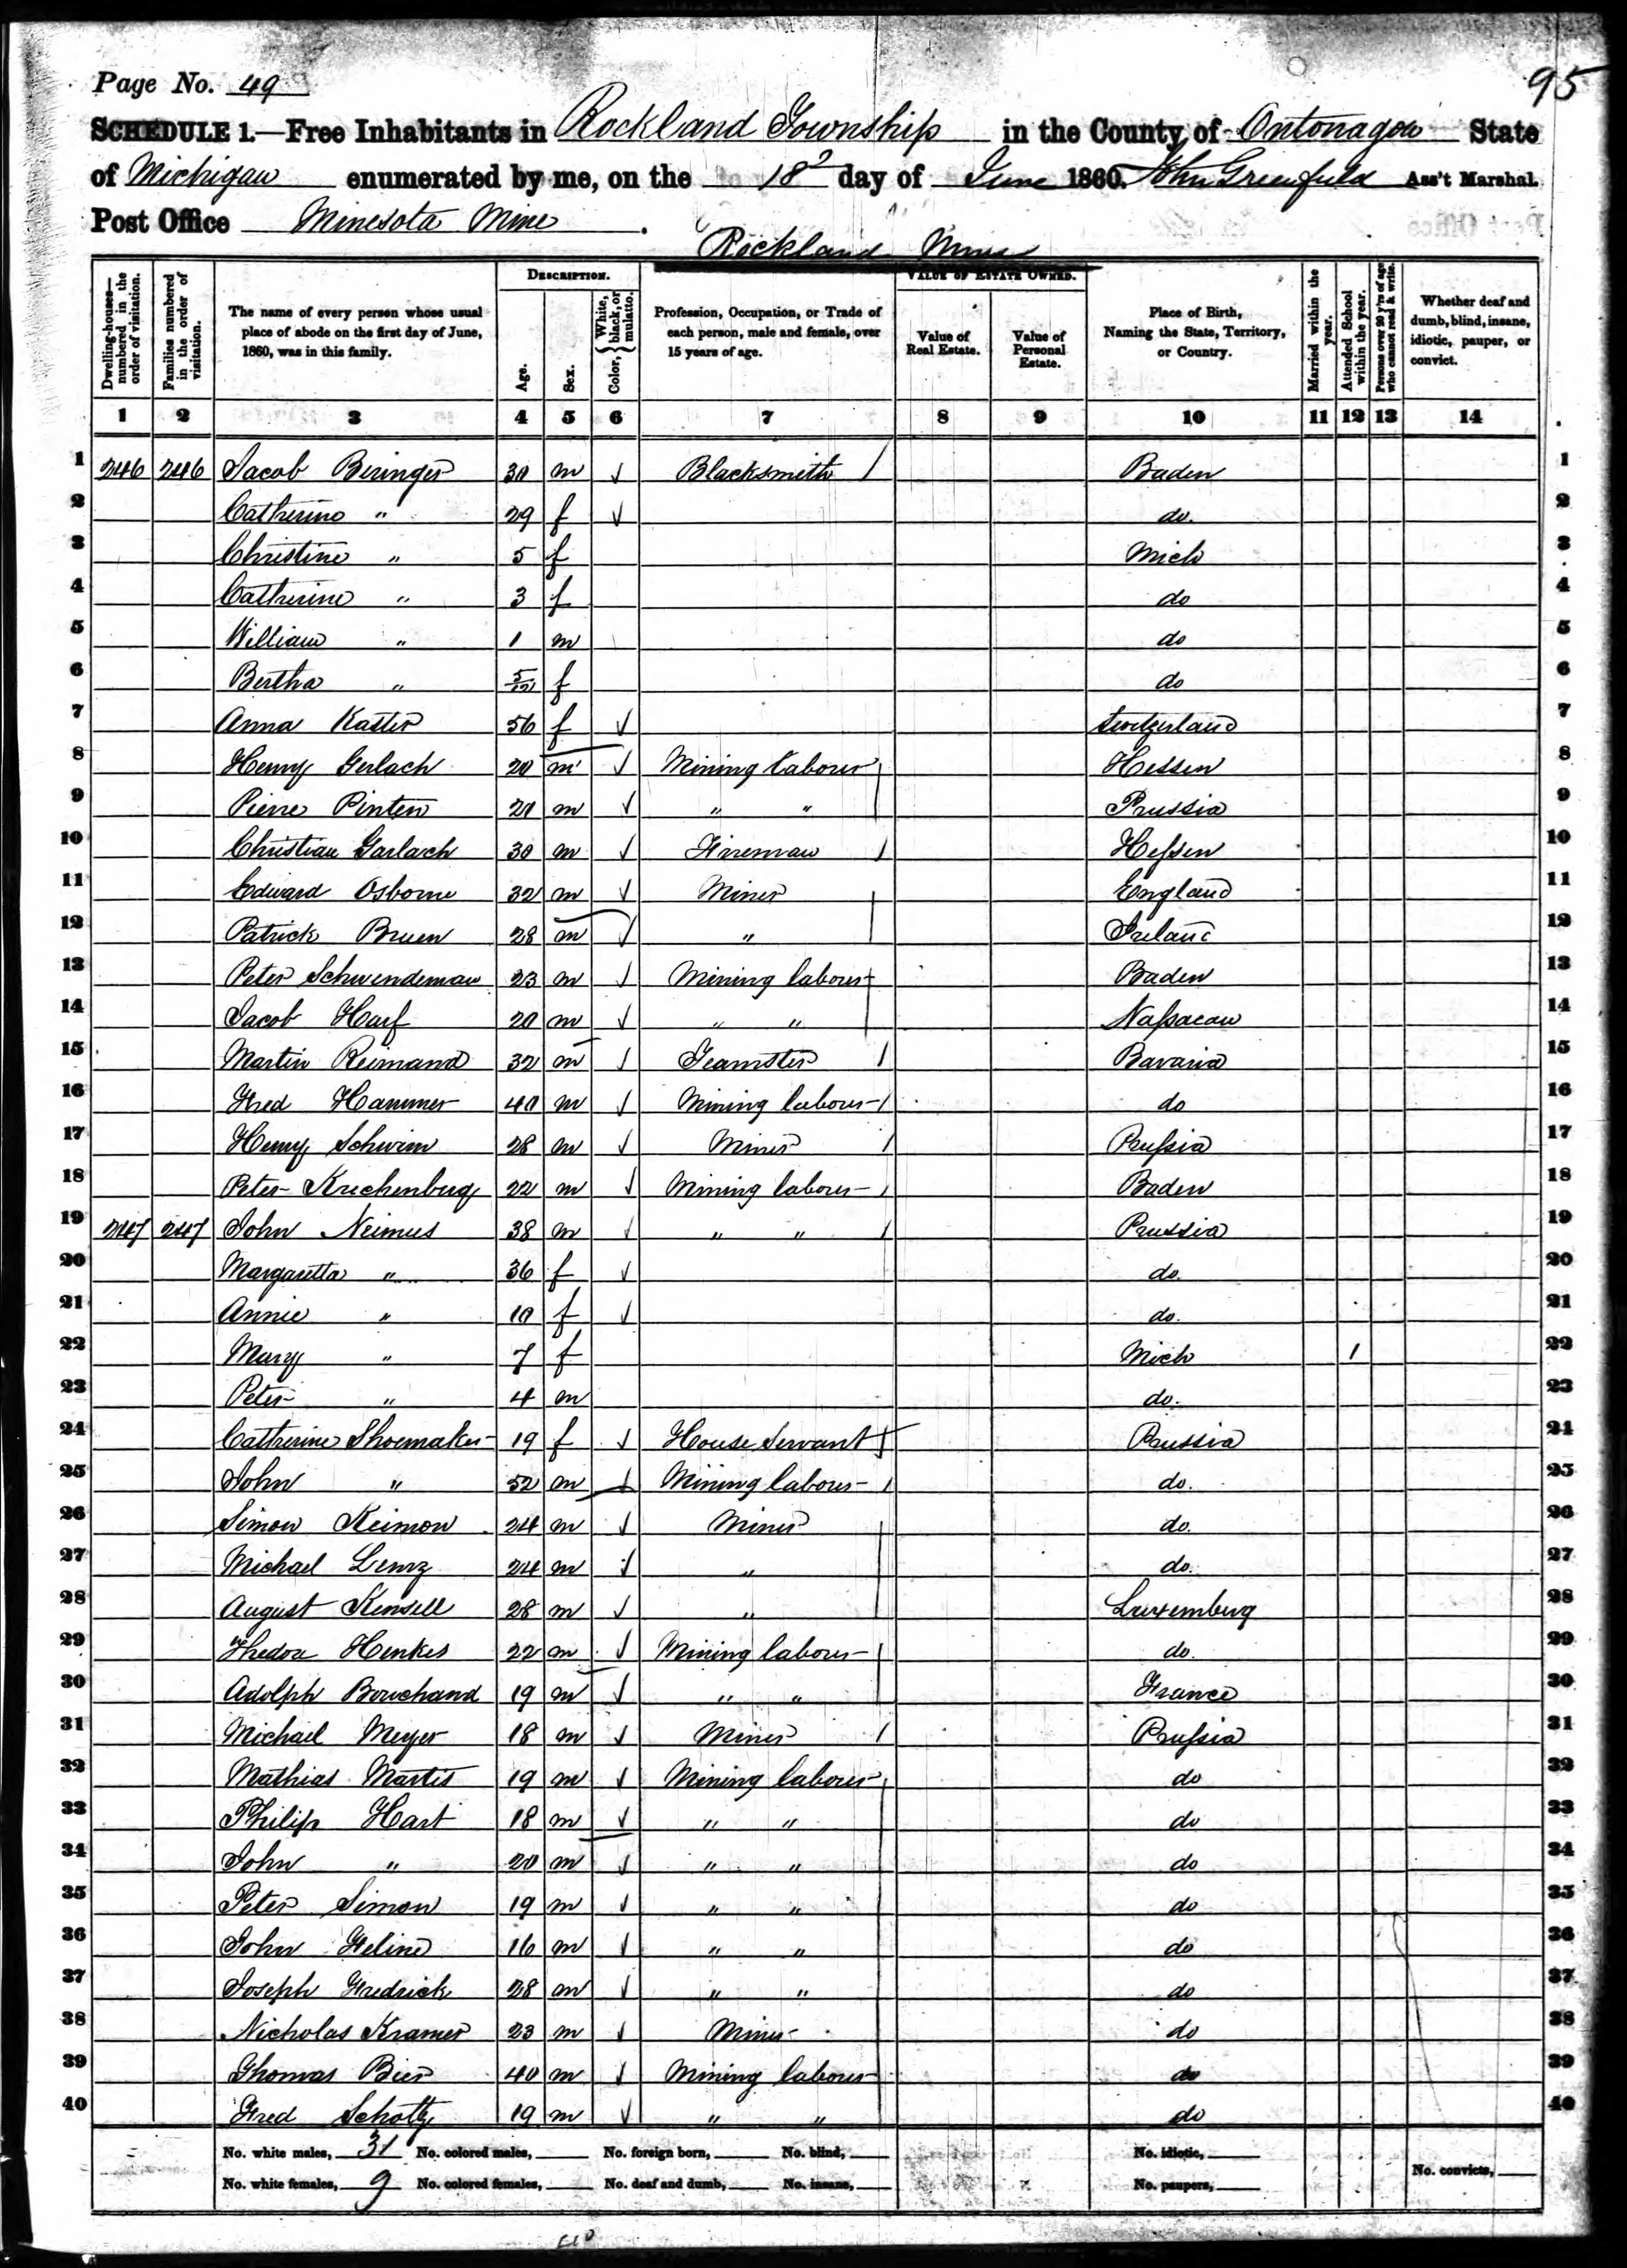 95
Page No. 49
SCHEDULE 1.—Free Inhabitants in Rockland Township in the County of Ontonagon State
of Michigan enumerated by me, on the 18 day of June 1860. John Greenfield Ass't Marshal.
Post Office Minesota Mine
Rockland Mine
Dwelling-houses—numbered in the order of visitation.
Families numbered in the order of visitation.
The name of every person whose usual place of abode on the first day of June, 1860, was in this family.
DESCRIPTION.
Age.
Sex.
Color, { White, black, or mulatto.
Profession, Occupation, or Trade of each person, male and female, over 15 years of age.
VALUE OF ESTATE OWNED.
Value of Real Estate.
Value of Personal Estate.
Place of Birth, Naming the State, Territory, or Country.
Married within the year.
Attended School within the year.
Persons over 20 y'rs of age who cannot read & write.
Whether deaf and dumb, blind, insane, idiotic, pauper, or convict.
1 2 3 4 5 6 7 8 9 10 11 12 13 14
1 246 246 Jacob Beringer 30 m Blacksmith Baden 1
2 Catherine " 29 f do. 2
3 Christine " 5 f Mich 3
4 Catherine " 3 f do 4
5 William " 1 m do 5
6 Bertha " 5/12 f do 6
7 Anna Kaster 56 f Switzerland 7
8 Henry Gerlach 20 m Mining labourer Hessen 8
9 Pierre Pinten 20 m " " Prussia 9
10 Christian Garlach 30 m Fireman Hessen 10
11 Edward Osborne 32 m Miner England 11
12 Patrick Bruen 28 m " Ireland 12
13 Peter Schwendeman 23 m Mining labourer Baden 13
14 Jacob Harf 20 m " " Nassacau 14
15 Martin Reimand 32 m Teamster Bavaria 15
16 Fred Hammer 40 m Mining labourer do 16
17 Henry Schwim 28 m Miner Prussia 17
18 Peter Kuchenburg 22 m Mining labourer Baden 18
19 247 247 John Neimus 38 m " " Prussia 19
20 Margaretta " 36 f do. 20
21 Annie " 10 f do. 21
22 Mary " 7 f Mich 1 22
23 Peter " 4 m do. 23
24 Catherine Shoemaker 19 f House Servant Prussia 24
25 John " 52 m Mining labourer do. 25
26 Simon Keimon 24 m Miner do. 26
27 Michael Lenz 24 m " do. 27
28 August Kinsell 28 m " Luxemburg 28
29 Thedor Henkes 22 m Mining labourer do. 29
30 Adolph Bouchand 19 m " " France 30
31 Michael Meyer 18 m Miner Prussia 31
32 Mathias Martis 19 m Mining labourer do 32
33 Philip Hart 18 m " " do 33
34 John " 20 m " " do 34
35 Peter Simon 19 m " " do 35
36 John Feline 16 m " " do 36
37 Joseph Fredrick 28 m " " do 37
38 Nicholas Kramer 23 m Miner do 38
39 Thomas Bier 40 m Mining labourer do 39
40 Fred Scholtz 19 m " " do 40
No. white males, 31 No. colored males, No. foreign born, No. blind, No. idiotic,
No. white females, 9 No. colored females, No. deaf and dumb, No. insane, No. paupers, No. convicts,